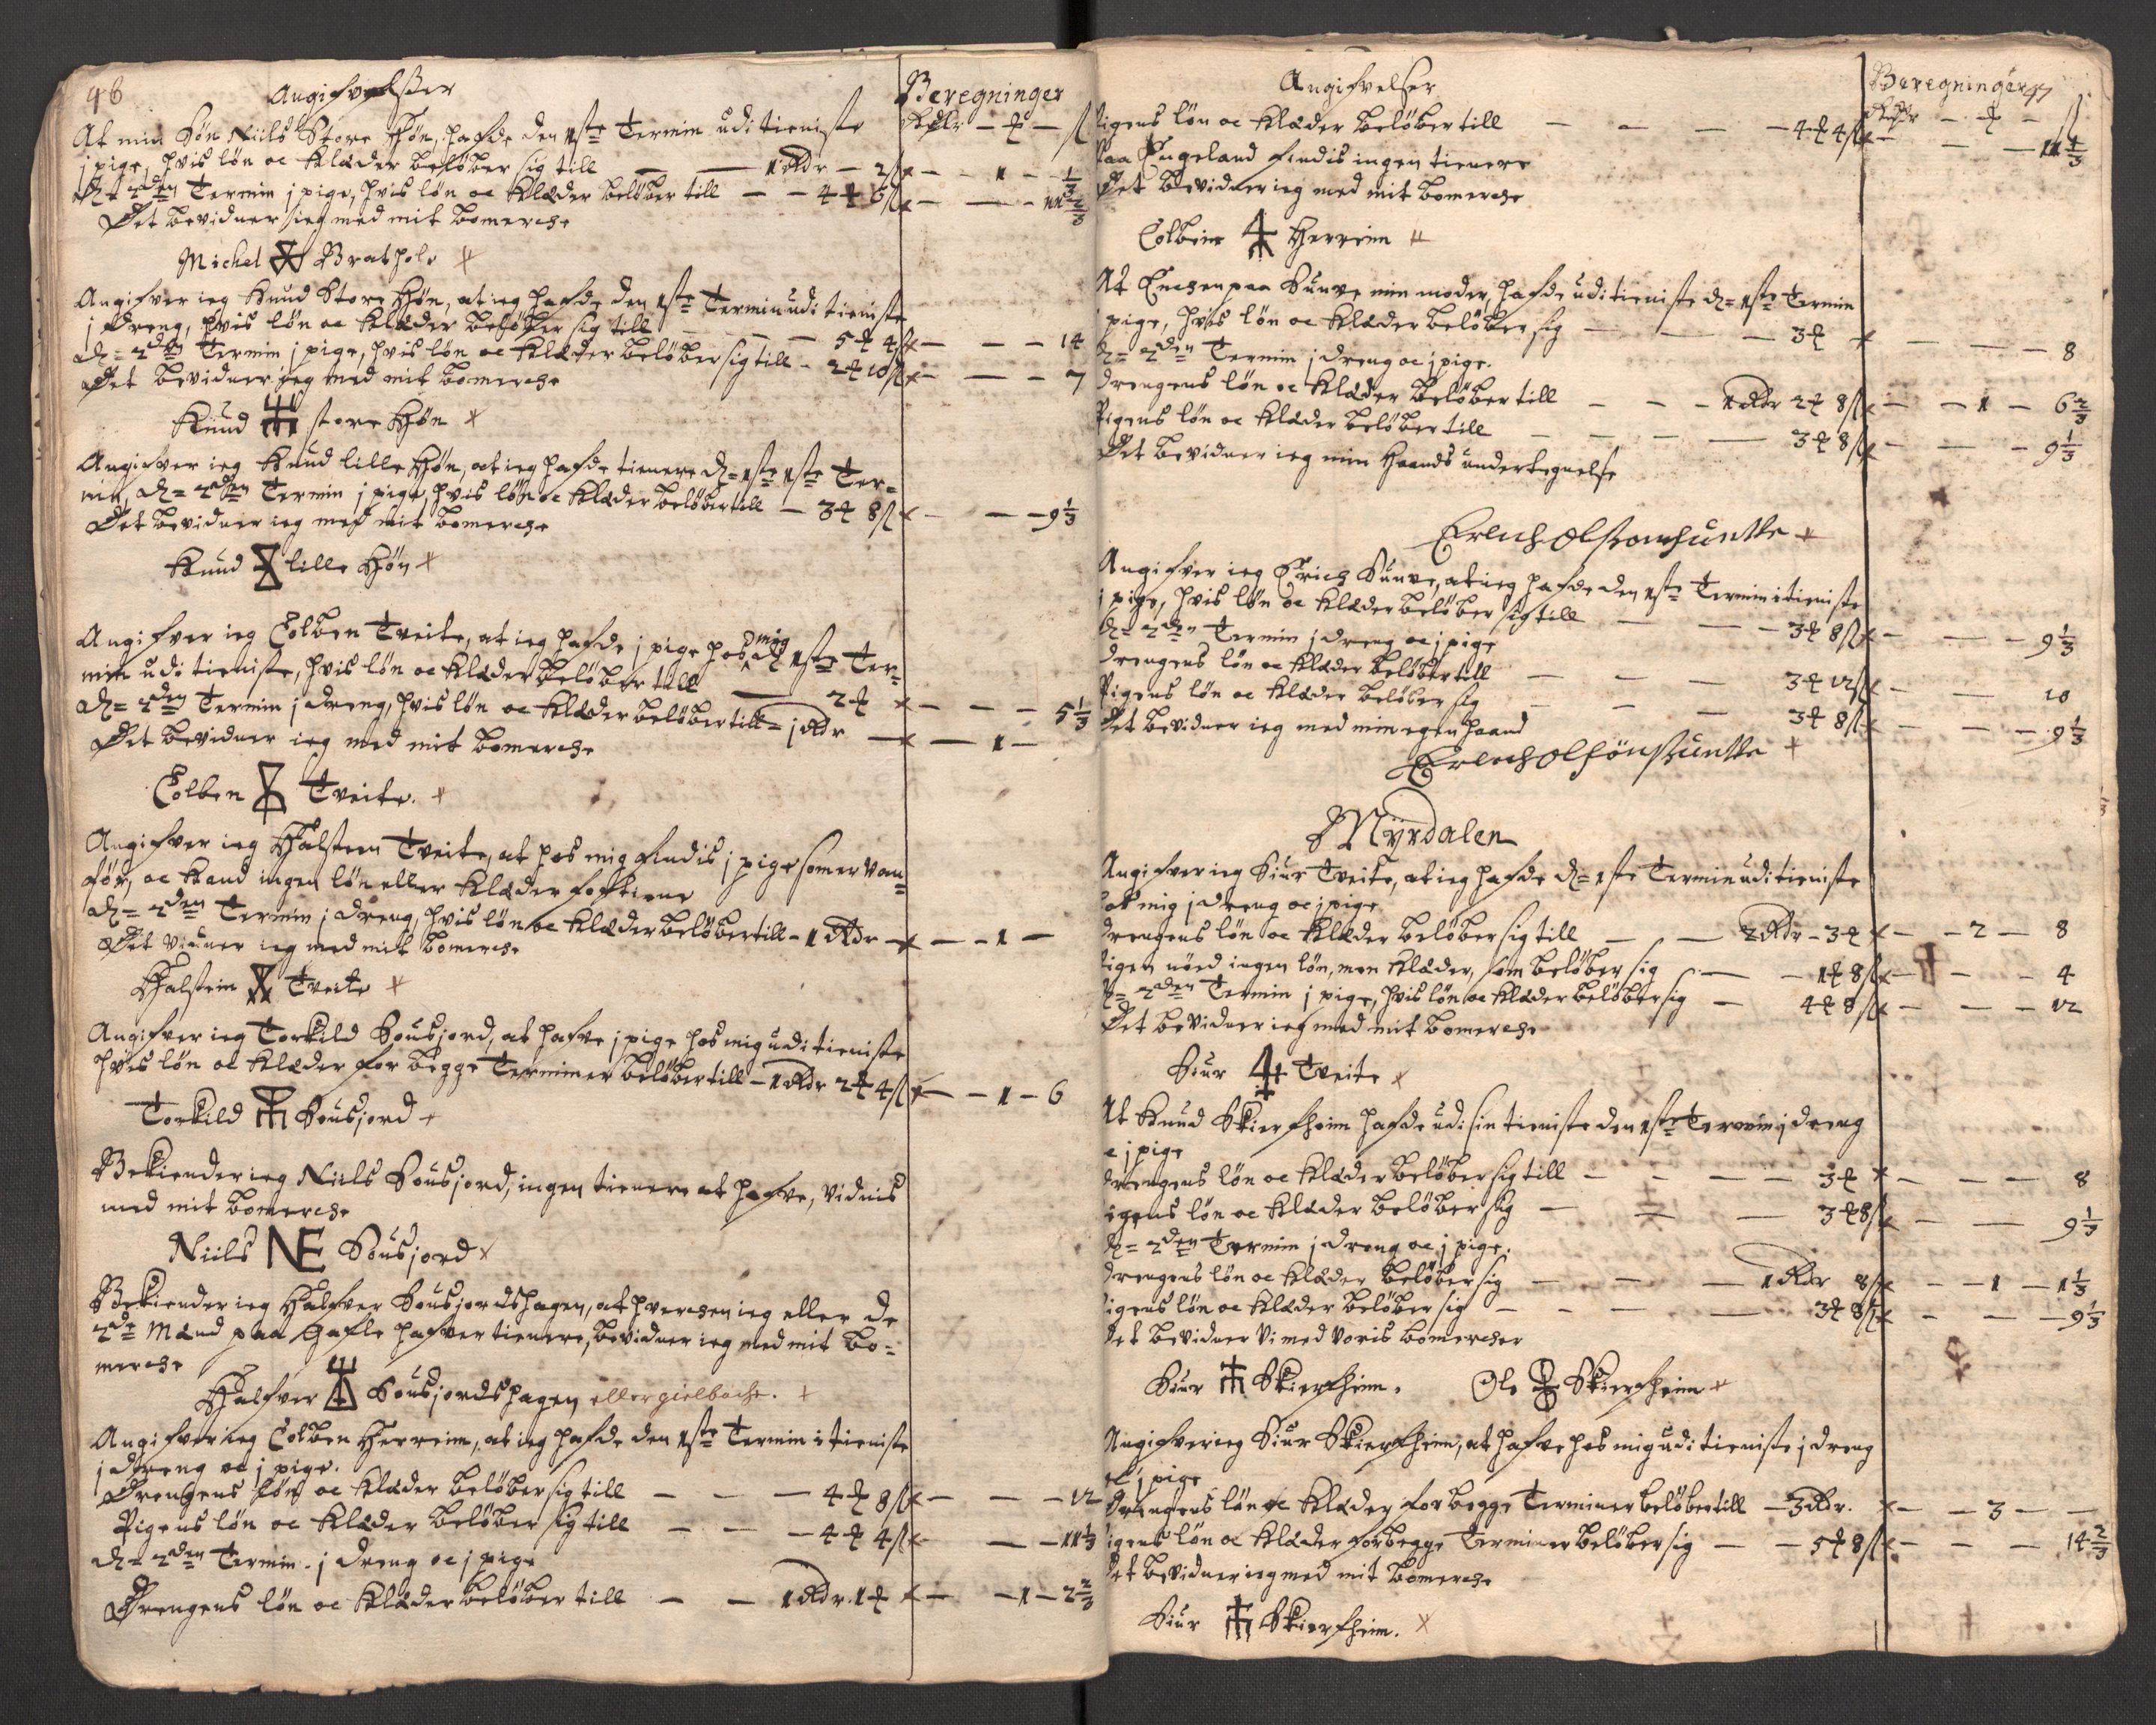 46
Angifvelsser
Beregninger
Rdlr — ꝉ — ß
At min Søn Niils Store Høn, hafde den 1ste Termin udi tieniste
j pige, hvis løn oc Klæder beløber sig till — — 1 Rdr — 2 ß — — 1 — 1/3
d= 2den Termin j pige, hvis løn oc Klæder beløber till — — 4 ꝉ 6 ß — — — 11 2/3
Det bevidner ieg med mit bomercke
Michel Brathole
Angifver ieg Knud Store Høn, at ieg hafde den 1ste Termin udi tieniste
j dreng, hvis løn oc Klæder beløber sig till — — — 5 ꝉ 4 ß — — — 14
d= 2den Termin j pige, hvis løn oc Klæder beløber sig till — 2 ꝉ 10 ß — — — 7
Det bevidner ieg med mit bomercke
Knud store Høn
Angifver ieg Knud lille Høn, at ieg hafde tienere d= 1ste 1ste Ter=
min, d= 2den Termin j pige, hvis løn oc Klæder beløber till — 3 ꝉ 8 ß — — — 9 1/3
Det bevidner ieg med mit bomercke
Knud lille Høn
Angifver ieg Colben Tveite, at ieg hafde j pige hos mig d= 1ste Ter=
min udi tieniste, hvis løn oc Klæder beløber till — 2 ꝉ — — — 5 1/3
d= 2den Termin j dreng, hvis løn oc Klæder beløber till = j Rdr — — 1 —
Det bevidner ieg med mit bomercke
Colben Tveite.
Angifver ieg Halsteen Tveite, at hos mig findis j pige som er van=
før, oc Kand ingen løn eller Klæder fortiene
d= 2den Termin j dreng, hvis løn oc Klæder beløber till — 1 Rdr — — — 1 —
Det vidner ieg med mit bomercke
Halstein Tveite
Angifver ieg Torkild Bousjord, at hafve j pige hos mig udi tieniste
hvis løn oc Klæder for begge Terminer beløber till — 1 Rdr 2 ꝉ 4 ß — — 1 — 6
Torkild Bousjord
Bekiender ieg Niils Bousjord, ingen tienere at hafve, vidnis
med mit bomercke
Niils NE Bousjord
Bekiender ieg Halfver Bousjordshagen, at hvercken ieg eller de
2de Mænd paa Hafle hafver tienere, bevidner ieg med mit bo=
mercke
Halfver Bousjordshagen eller gielbache.
Angifver ieg Colben Herreim, at ieg hafde den 1ste Termin i tieniste
j dreng oc j pige.
Drengens løn oc Klæder beløber sig till — — — 4 ꝉ 8 ß — — — 12
Pigens løn oc Klæder beløber sig till — — — 4 ꝉ 4 ß — — — 11 1/3
d= 2den Termin. j dreng oc j pige
Drengens løn oc Klæder beløber till — — 1 Rdr. 1 ꝉ — — 1 — 2 2/3
Angifvelser
Beregninger 47
Rdlr — ꝉ — ß
Pigens løn oc Klæder beløber till — — — — 4 ꝉ 4 ß — — — 11 1/3
Paa Engeland findis ingen tienere
Det bevidner ieg med mit bomercke
Colbein Herreim
At Enchen paa Sunve min moder, hafde udi tieniste d= 1ste Termin
pige, hvis løn oc Klæder beløber sig — — — 3 ꝉ — — — 8
d= 2den Termin j dreng oc j pige.
drengens løn oc Klæder beløber till — — — 1 Rdr 2 ꝉ 8 ß — — 1 — 6 2/3
Pigens løn oc Klæder beløber till — — — — 3 ꝉ 8 ß — — — 9 1/3
Det bevidner ieg min Haands undertegnelse
Angifver ieg Erich Sunve, at ieg hafde den 1ste Termin i tieniste
j pige, hvis løn oc Klæder beløber sig till — — — 3 ꝉ 8 ß — — — 9 1/3
d= 2den Termin j dreng oc j pige
drengens løn oc Klæder beløber till — — — 3 ꝉ 12 ß — — — 10
Pigens løn oc Klæder beløber sig — — — 3 ꝉ 8 ß — — — 9 1/3
Det bevidner ieg med min egen haand
Myrdalen
Angifver ieg Siur Tveite, at ieg hafde d= 1ste Termin udi tieniste
hos mig j dreng oc j pige
drengens løn oc Klæder beløber sig till — — 2 Rdr — 3 ꝉ — — 2 — 8
Pigen nöed ingen løn, men Klæder, som beløber sig — — 1 ꝉ 8 ß — — — 4
d= 2den Termin j pige, hvis løn oc Klæder beløber sig — 4 ꝉ 8 ß — — — 12
Det bevidner ieg med mit bomercke
Siur Tveite
At Knud Skierfheim hafde udi sin tieniste den 1ste Termin j dreng
oc j pige
drengens løn oc Klæder beløber sig till — — — — 3 ꝉ — — — 8
Pigens løn oc Klæder beløber sig — — — 3 ꝉ 8 ß — — — 9 1/3
d= 2den Termin j dreng oc j pige.
drengens løn oc Klæder beløber sig — — — 1 Rdr 8 ß — — 1 — 1 1/3
Pigens løn oc Klæder beløber sig — — — — 3 ꝉ 8 ß — — — 9 1/3
Det bevidner vi med voris bomercker
Siur Skierfheim. Ole Skierfheim
Angifver ieg Siur Skierfheim, at hafve hos mig udi tieniste j dreng
oc j pige
Drengens løn oc Klæder for begge Terminer beløber till — 3 Rdr. — — 3 — —
Pigens løn oc Klæder for begge Terminer beløber sig — — 5 ꝉ 8 ß — — — 14 2/3
Det bevidner ieg med mit bomercke
Siur Skierfheim.